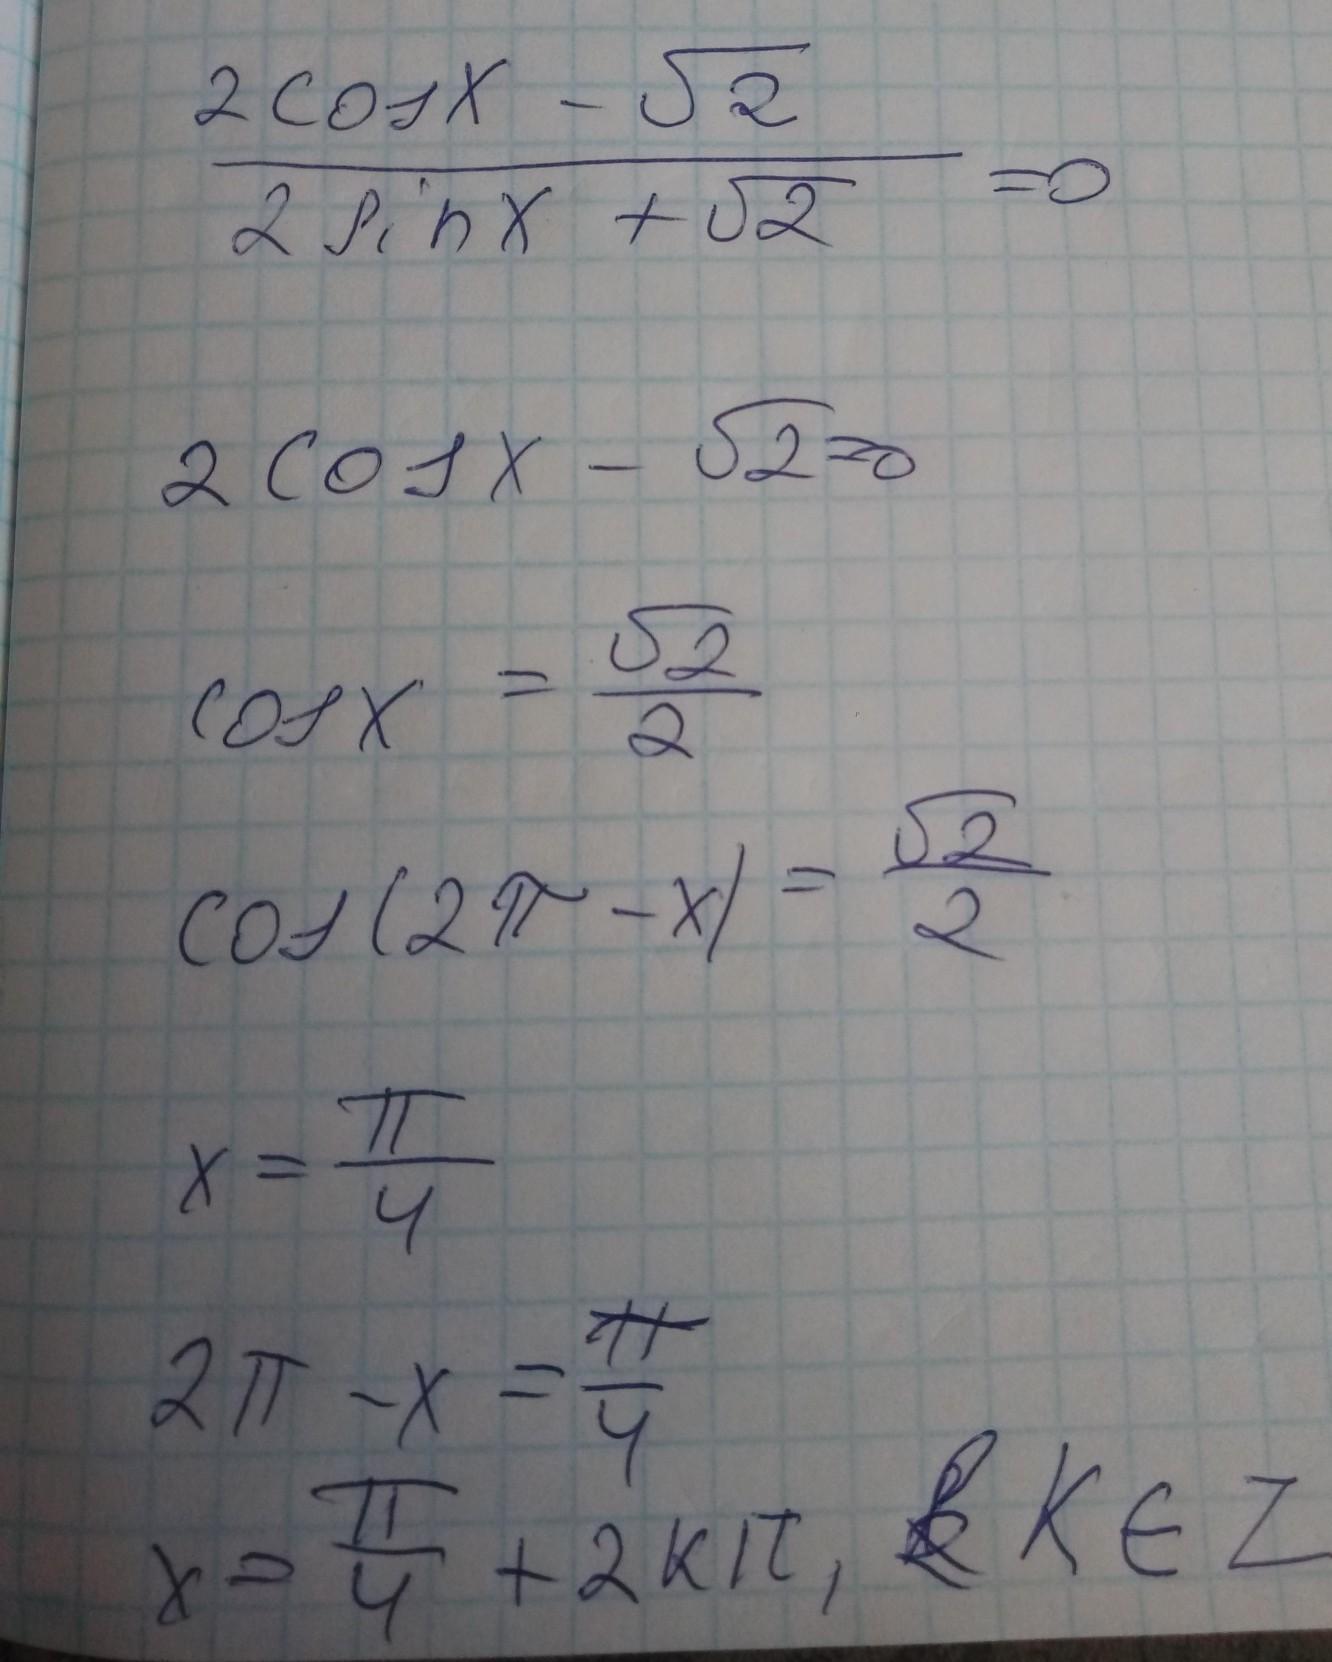 2cosx - √2
2sinx + √2 =0
2cosx - √2=0
cosx = √2/2
cos(2π-x) = √2/2
x = π/4
2π-x = π/4
x = π/4 + 2kπ, K∈Z